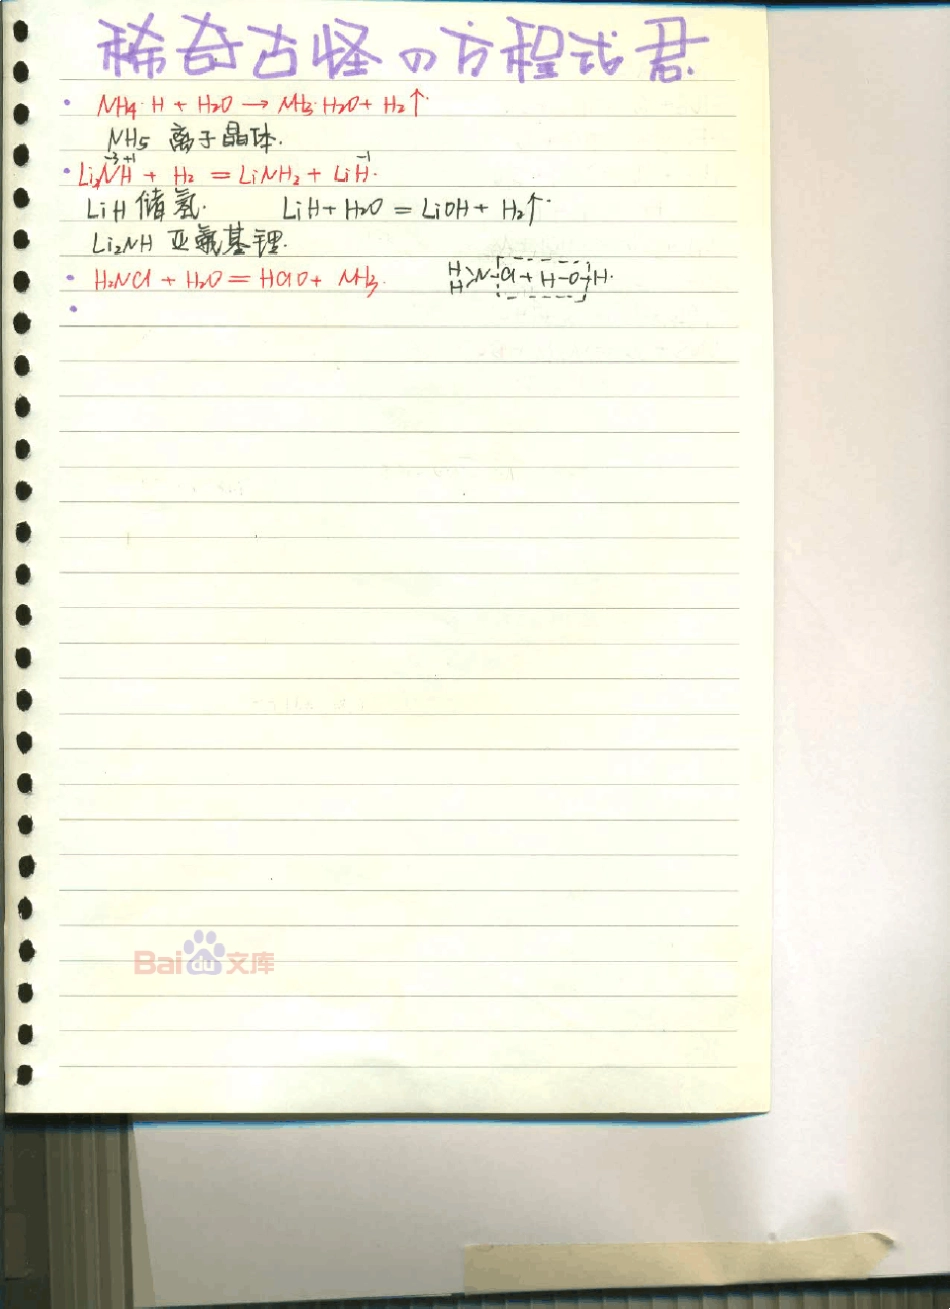 稀奇古怪の方程式君.
· NH4·H + H2O → NH3·H2O + H2↑.
NH5 离子晶体.
-3 +1 -1
· Li2NH + H2 = LiNH2 + LiH.
LiH 储氢. LiH + H2O = LiOH + H2↑.
Li2NH 亚氨基锂.
· H2NCl + H2O = HClO + NH3. H H >N-Cl + H-O-H.
·
Baidu文库